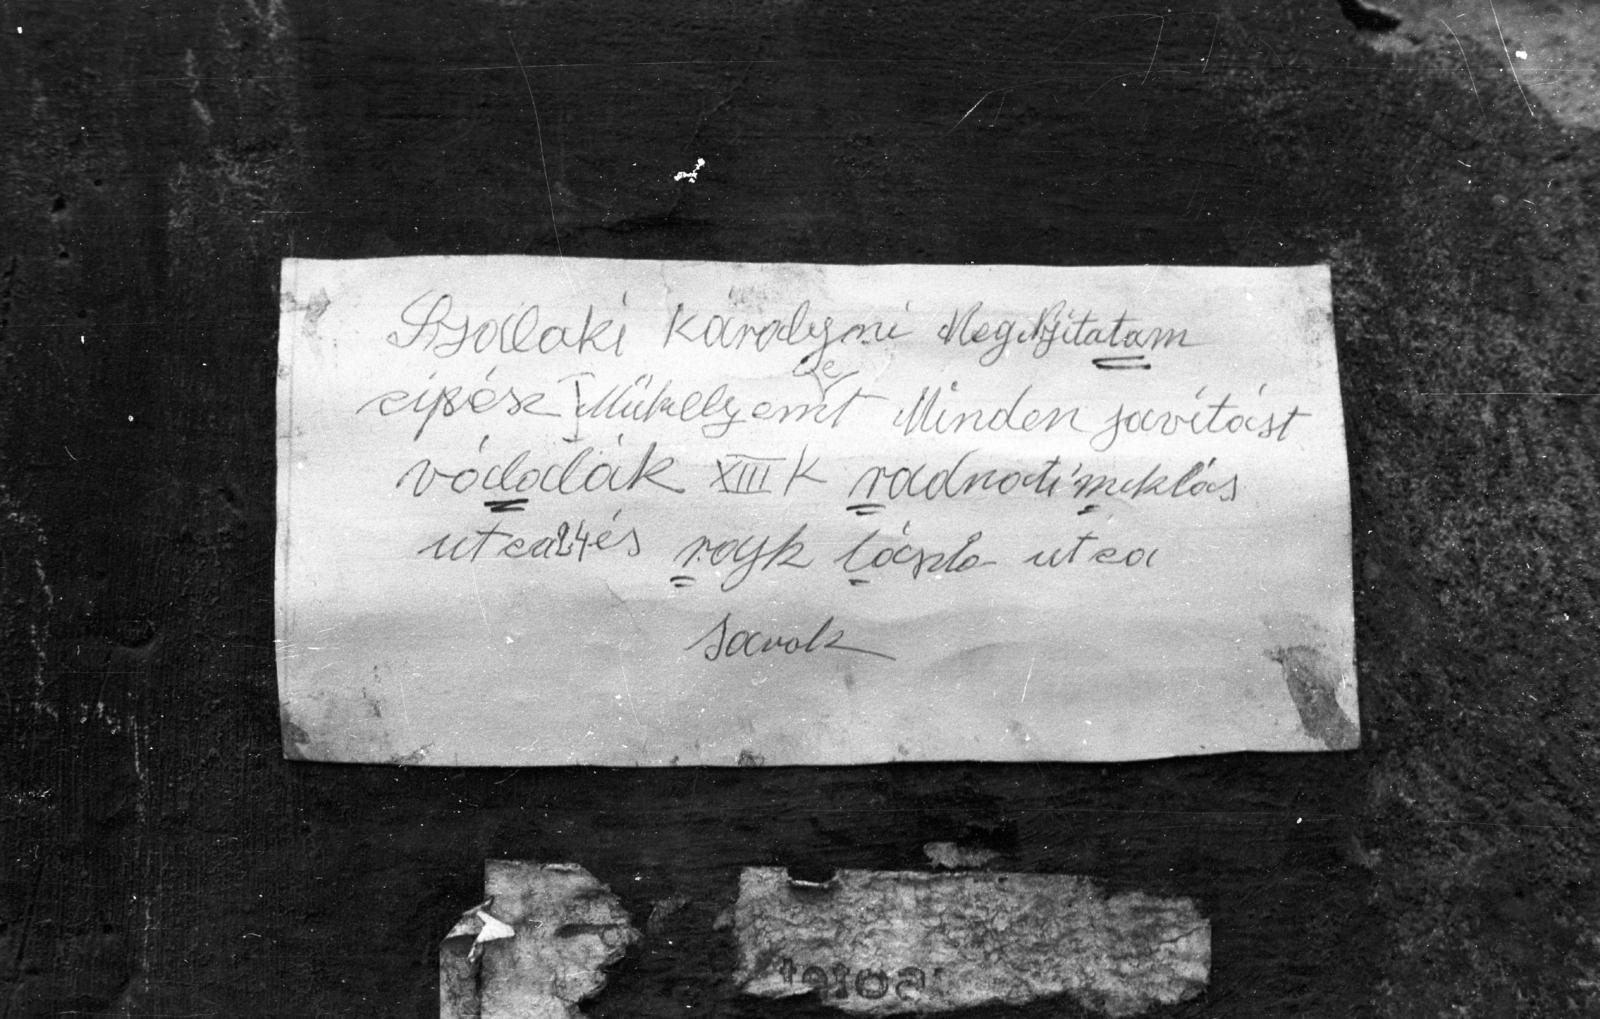 Szalaki károlyni MegNyitatam
cipész Műhelyemet Minden javítást
vádalák XIII K radnoti miklós
utca 24 és rajk lászlo utca
sarok